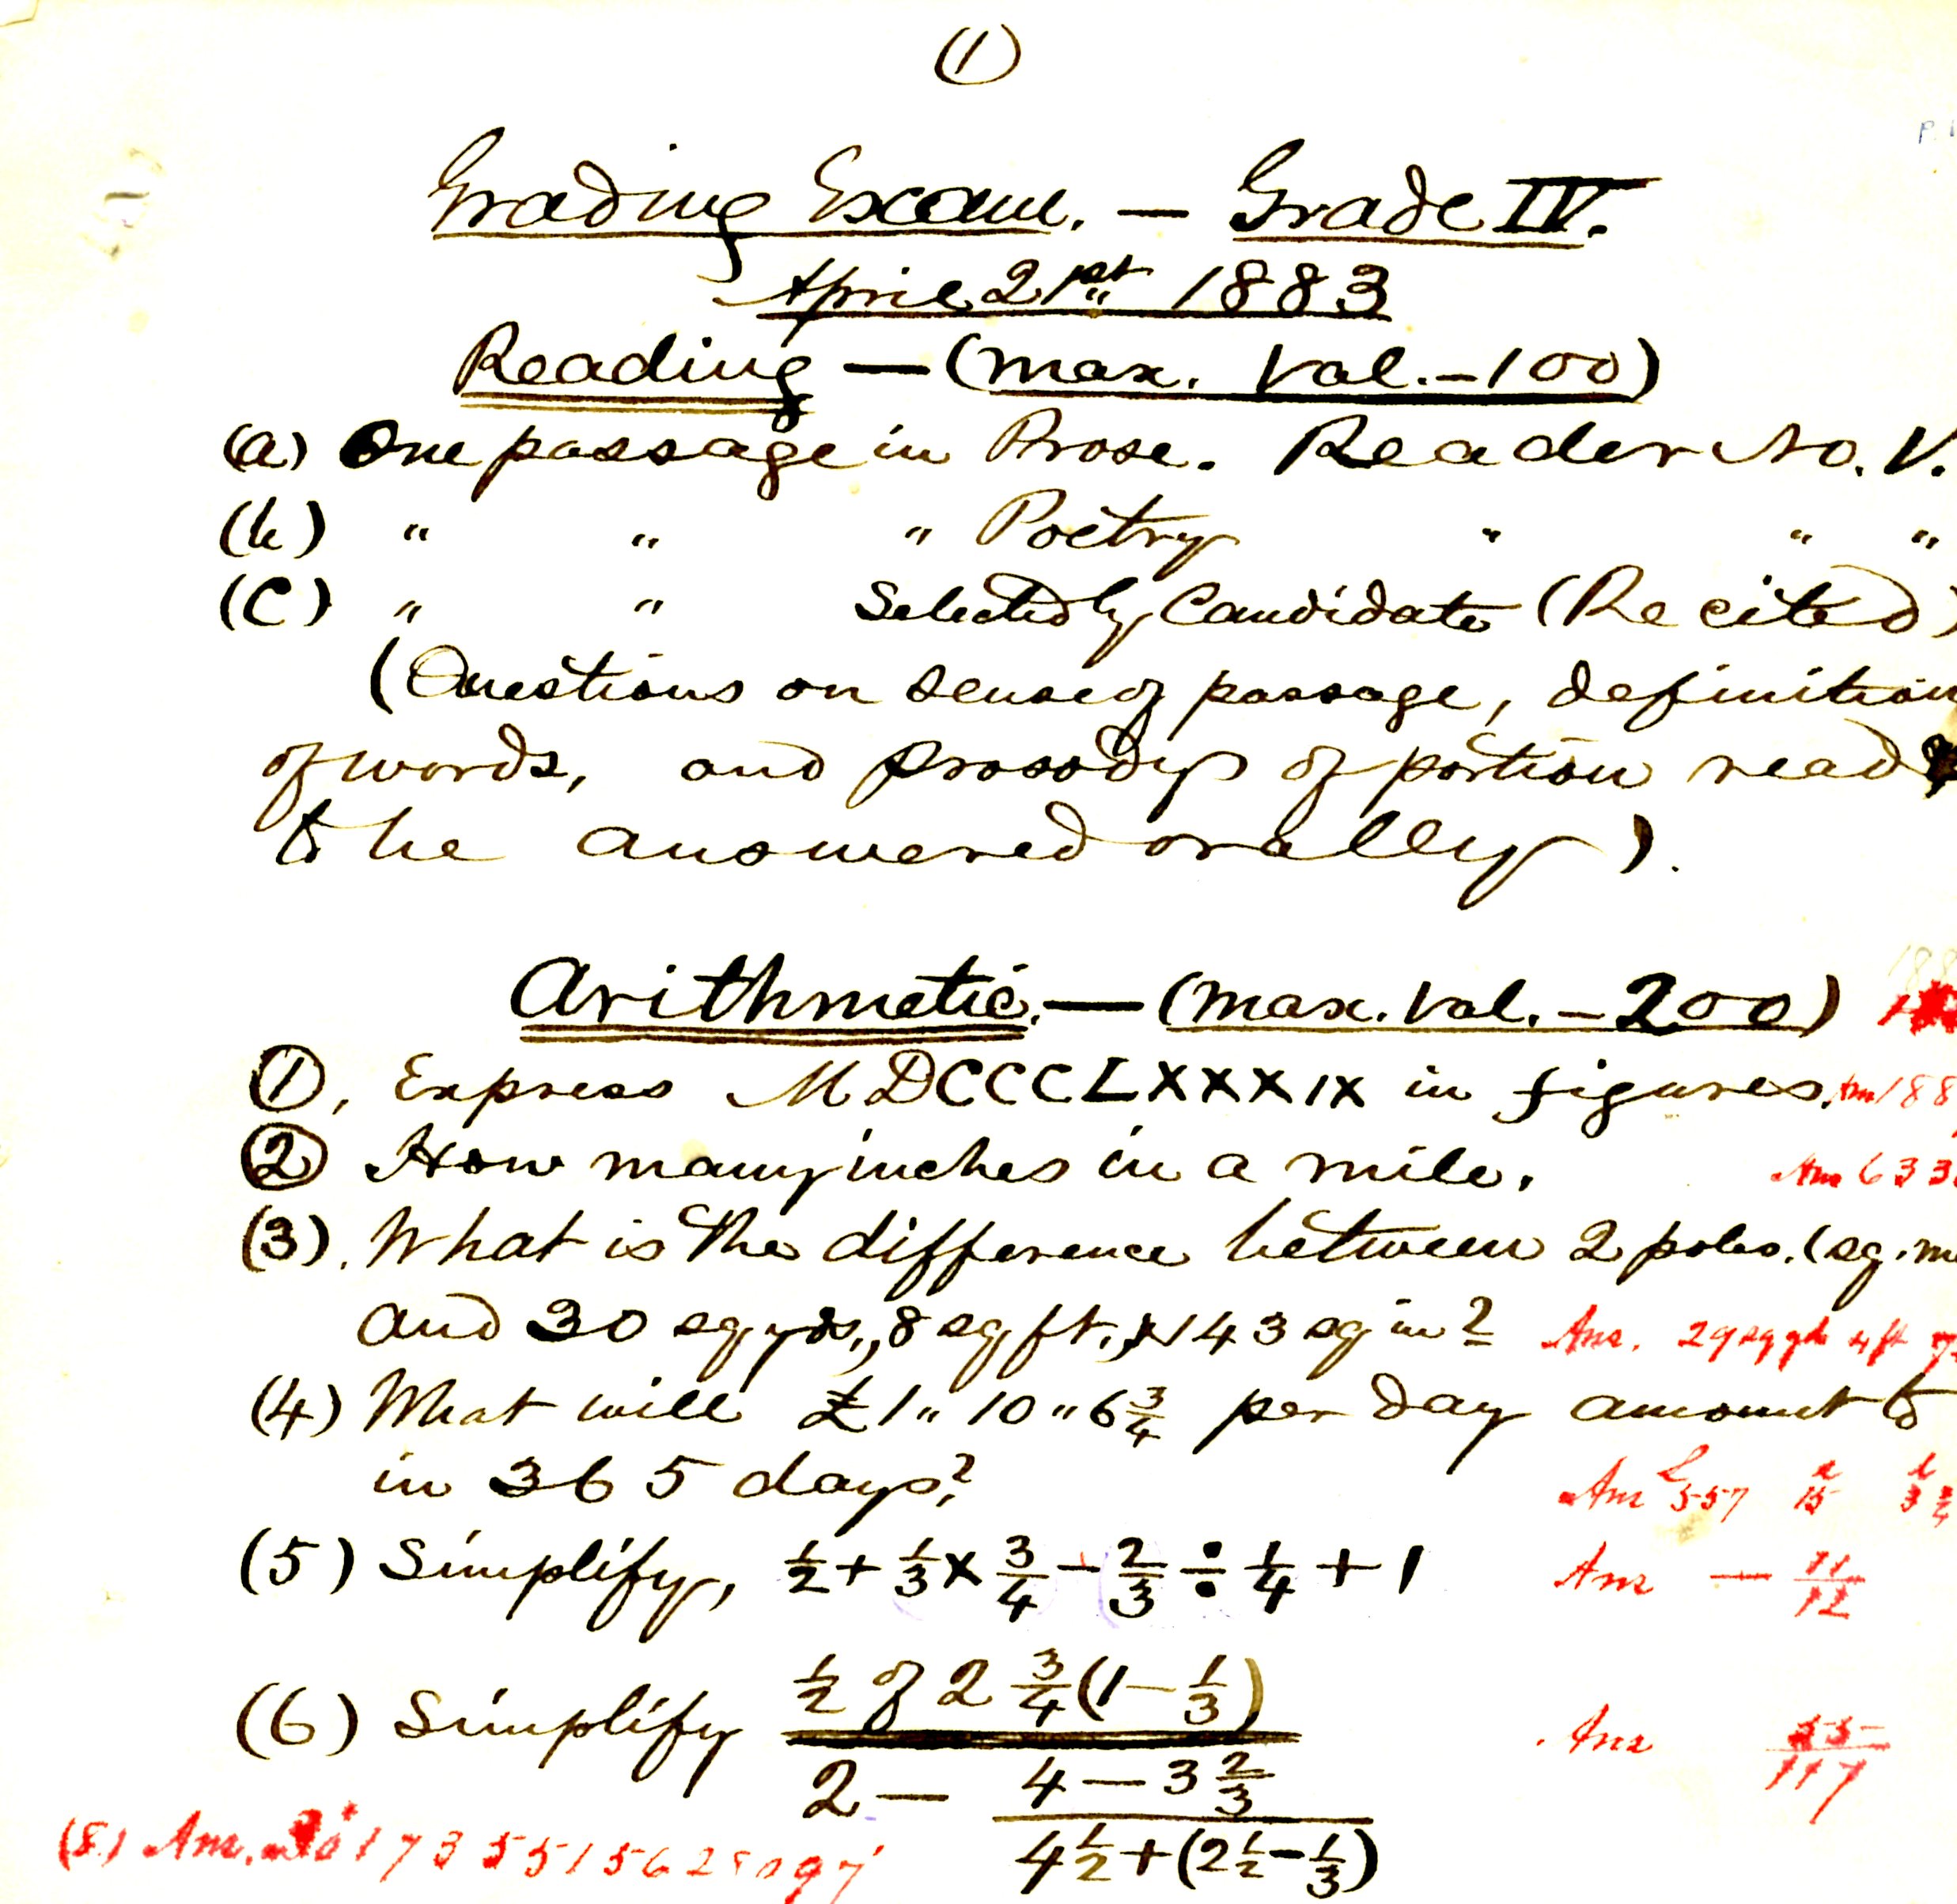 (1)
P. 1
Grading Exam. — Grade IV.
April 21st 1883
Reading — (max. Val. — 100)
(a) One passage in Prose. Reader No. V.
(b) " " " Poetry " " "
(c) " " Selected by Candidate (Recited)
(Questions on sense of passage, definition
of words, and prosody of portion read
to be answered orally).
Arithmetic. — (max. Val. — 200)
(1), Express MDCCCLXXXIX in figures. Ans 188
(2) How many inches in a mile. Ans 633
(3). What is the difference between 2 poles. (sq. m
and 30 sq yds,, 8 sq ft,, 143 sq in? Ans. 29 sq yds 4 ft 7
(4) What will £1 " 10 " 6 3/4 per day amount to
in 365 days? Ans £557 s 15 d 3 3/4
(5) Simplify, 1/2 + 1/3 x 3/4 - 2/3 ÷ 1/4 + 1 Ans — 11/12
(6) Simplify 1/2 of 2 3/4 (1 - 1/3) Ans 55/117
2 — 4 — 3 2/3
4 1/2 + (2 1/2 - 1/3)
(8.) Ans.